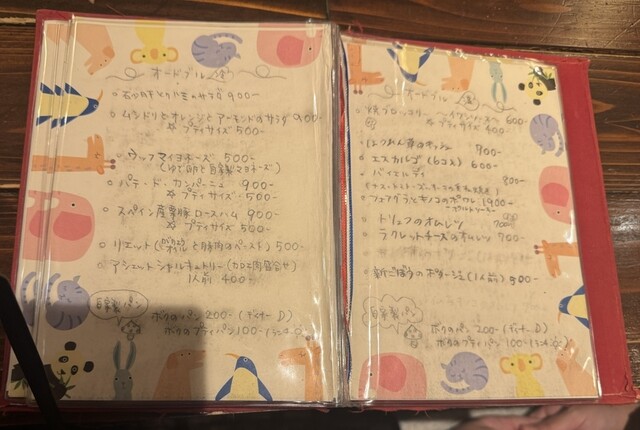 オードブル
砂肝とりやさいのサラダ 900-
ムンドリとオレンジとアーモンドのサラダ 900-
☆プティサイズ 500-
ウッフマイヨネーズ 500-
(ゆで卵と自家製マヨネーズ)
パテ・ド・カンパーニュ 900-
☆プティサイズ 500-
スペイン産栗豚ロースハム 900-
☆プティサイズ 500-
リエット(と豚肉のペースト) 500-
アシェットシャルキュトリー(カロエ肉盛合せ)
1人前 400-
自家製パン
ボクのパン 200-(ディナーD)
ボクのプティパン 100-(ランチ
オードブル
600-
☆プティサイズ 400-
ほうれん草のキッシュ 900-
エスカルゴ(6コ入) 600-
バイエルディ 800-
フォアグラとキノコのポワレ 1900-
トリュフのオムレツ
ラクレットチーズのオムレツ 700-
新ごぼうのポタージュ(1人前) 500-
自家製パン
ボクのパン 200-(ディナーD)
ボクのプティパン 100-(ランチ